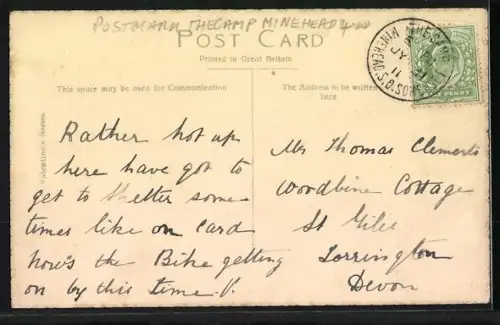 POSTMARK THE CAMP MINEHEAD 4.00
POST CARD
Printed in Great Britain
This space may be used for Communication
The Address to be written
here
Valentine's Series
Rather hot up
here have got to
get to shelter some
times like on card
how's the Bike getting
on by this time. V.
Mr Thomas Clements
Woodbine Cottage
St Giles
Torrington
Devon
MINEHEAD.S.O.SOM
JY
11
PENNY